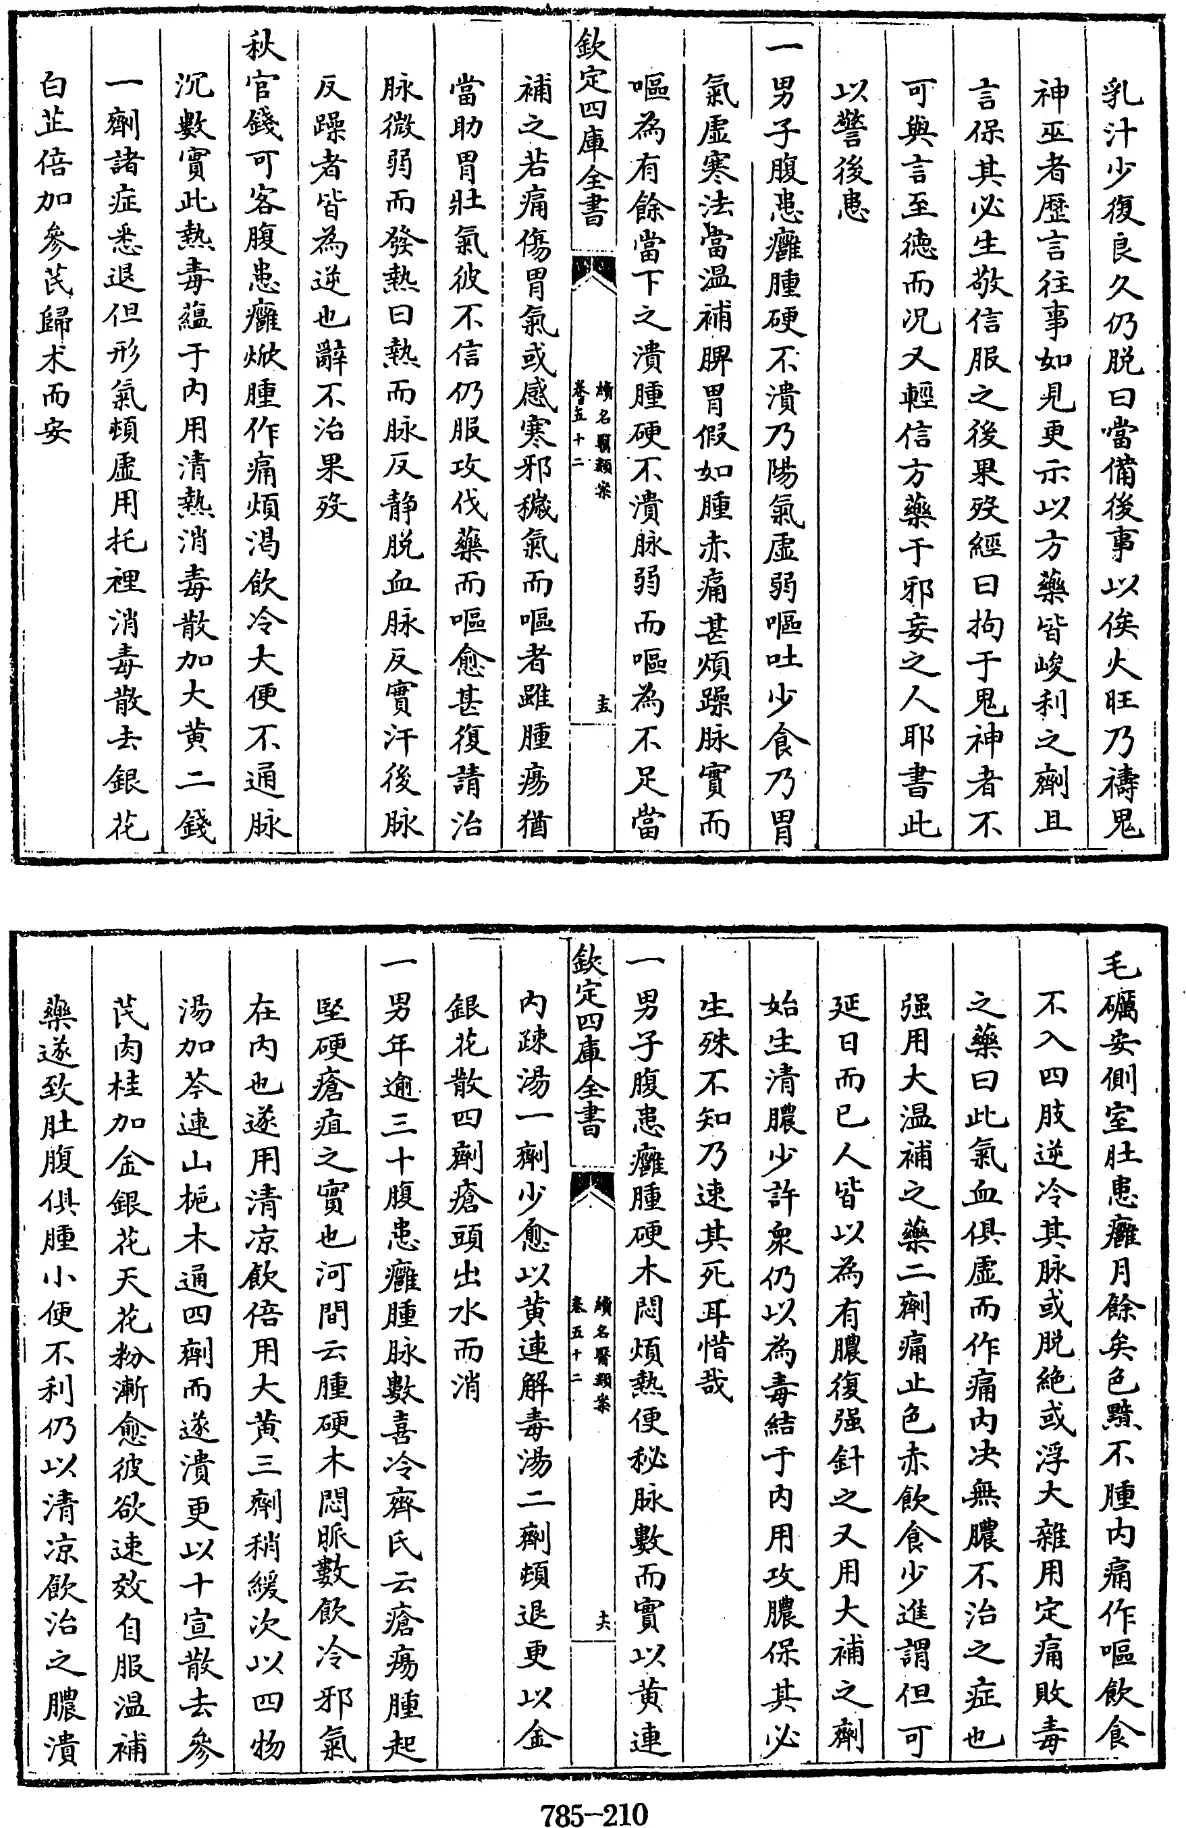 乳汁少復良久仍脱曰當備後事以俟火旺乃禱鬼
神巫者歴言往事如見更示以方藥皆峻利之劑且
言保其必生敬信服之後果殁經曰拘于鬼神者不
可與言至德而况又輕信方藥于邪妄之人耶書此
以警後患
一男子腹患癰腫硬不潰乃陽氣虛弱嘔吐少食乃胃
氣虛寒法當温補脾胃假如腫赤痛甚煩躁脉實而
嘔為有餘當下之潰腫硬不潰脉弱而嘔為不足當
欽定四庫全書
續名醫類案
卷五十二
十五
補之若痛傷胃氣或感寒邪穢氣而嘔者雖腫瘍猶
當助胃壯氣彼不信仍服攻伐藥而嘔愈甚復請治
脉微弱而發熱曰熱而脉反静脱血脉反實汗後脉
反躁者皆為逆也辭不治果殁
秋官錢可客腹患癰焮腫作痛煩渴飲冷大便不通脉
沉數實此熱毒藴于内用清熱消毒散加大黄二錢
一劑諸症悉退但形氣頓虛用托裡消毒散去銀花
白芷倍加參芪歸术而安
毛礪安側室肚患癰月餘矣色黯不腫内痛作嘔飲食
不入四肢逆冷其脉或脱絶或浮大雜用定痛敗毒
之藥曰此氣血俱虛而作痛内决無膿不治之症也
强用大温補之藥二劑痛止色赤飲食少進謂但可
延日而已人皆以為有膿復强針之又用大補之劑
始生清膿少許衆仍以為毒結于内用攻膿保其必
生殊不知乃速其死耳惜哉
一男子腹患癰腫硬木悶煩熱便秘脉數而實以黄連
欽定四庫全書
續名醫類案
卷五十二
十六
内疎湯一劑少愈以黄連解毒湯二劑頓退更以金
銀花散四劑瘡頭出水而消
一男年逾三十腹患癰腫脉數喜冷齊氏云瘡瘍腫起
堅硬瘡疽之實也河間云腫硬木悶脈數飲冷邪氣
在内也遂用清凉飲倍用大黄三劑稍緩次以四物
湯加芩連山梔木通四劑而遂潰更以十宣散去參
芪肉桂加金銀花天花粉漸愈彼欲速效自服温補
藥遂致肚腹俱腫小便不利仍以清凉飲治之膿潰
785-210